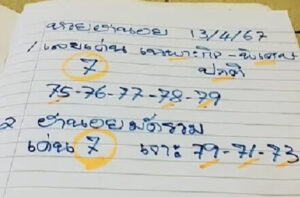 นายฮานอย 13/4/67
1 เลขเด่น เฉพาะกิจ-พิเศษ
7 ปกติ
75-76-77-78-79
2 ฮานอยมัดรวม
เด่น 7 เจาะ 79-71-73